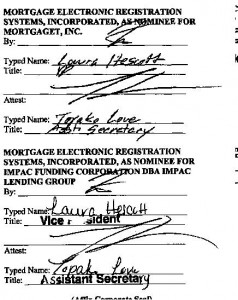 MORTGAGE ELECTRONIC REGISTRATION
SYSTEMS, INCORPORATED, AS NOMINEE FOR
MORTGAGEIT, INC.
By:
Typed Name: Laura Hescott
Title:
Attest:
Typed Name: Topako Love
Title: Asst Secretary
MORTGAGE ELECTRONIC REGISTRATION
SYSTEMS, INCORPORATED, AS NOMINEE FOR
IMPAC FUNDING CORPORATION DBA IMPAC
LENDING GROUP
By:
Typed Name: Laura Hescott
Title: Vice President
Attest:
Typed Name: Topako Love
Title: Assistant Secretary
(Affix Corporate Seal)